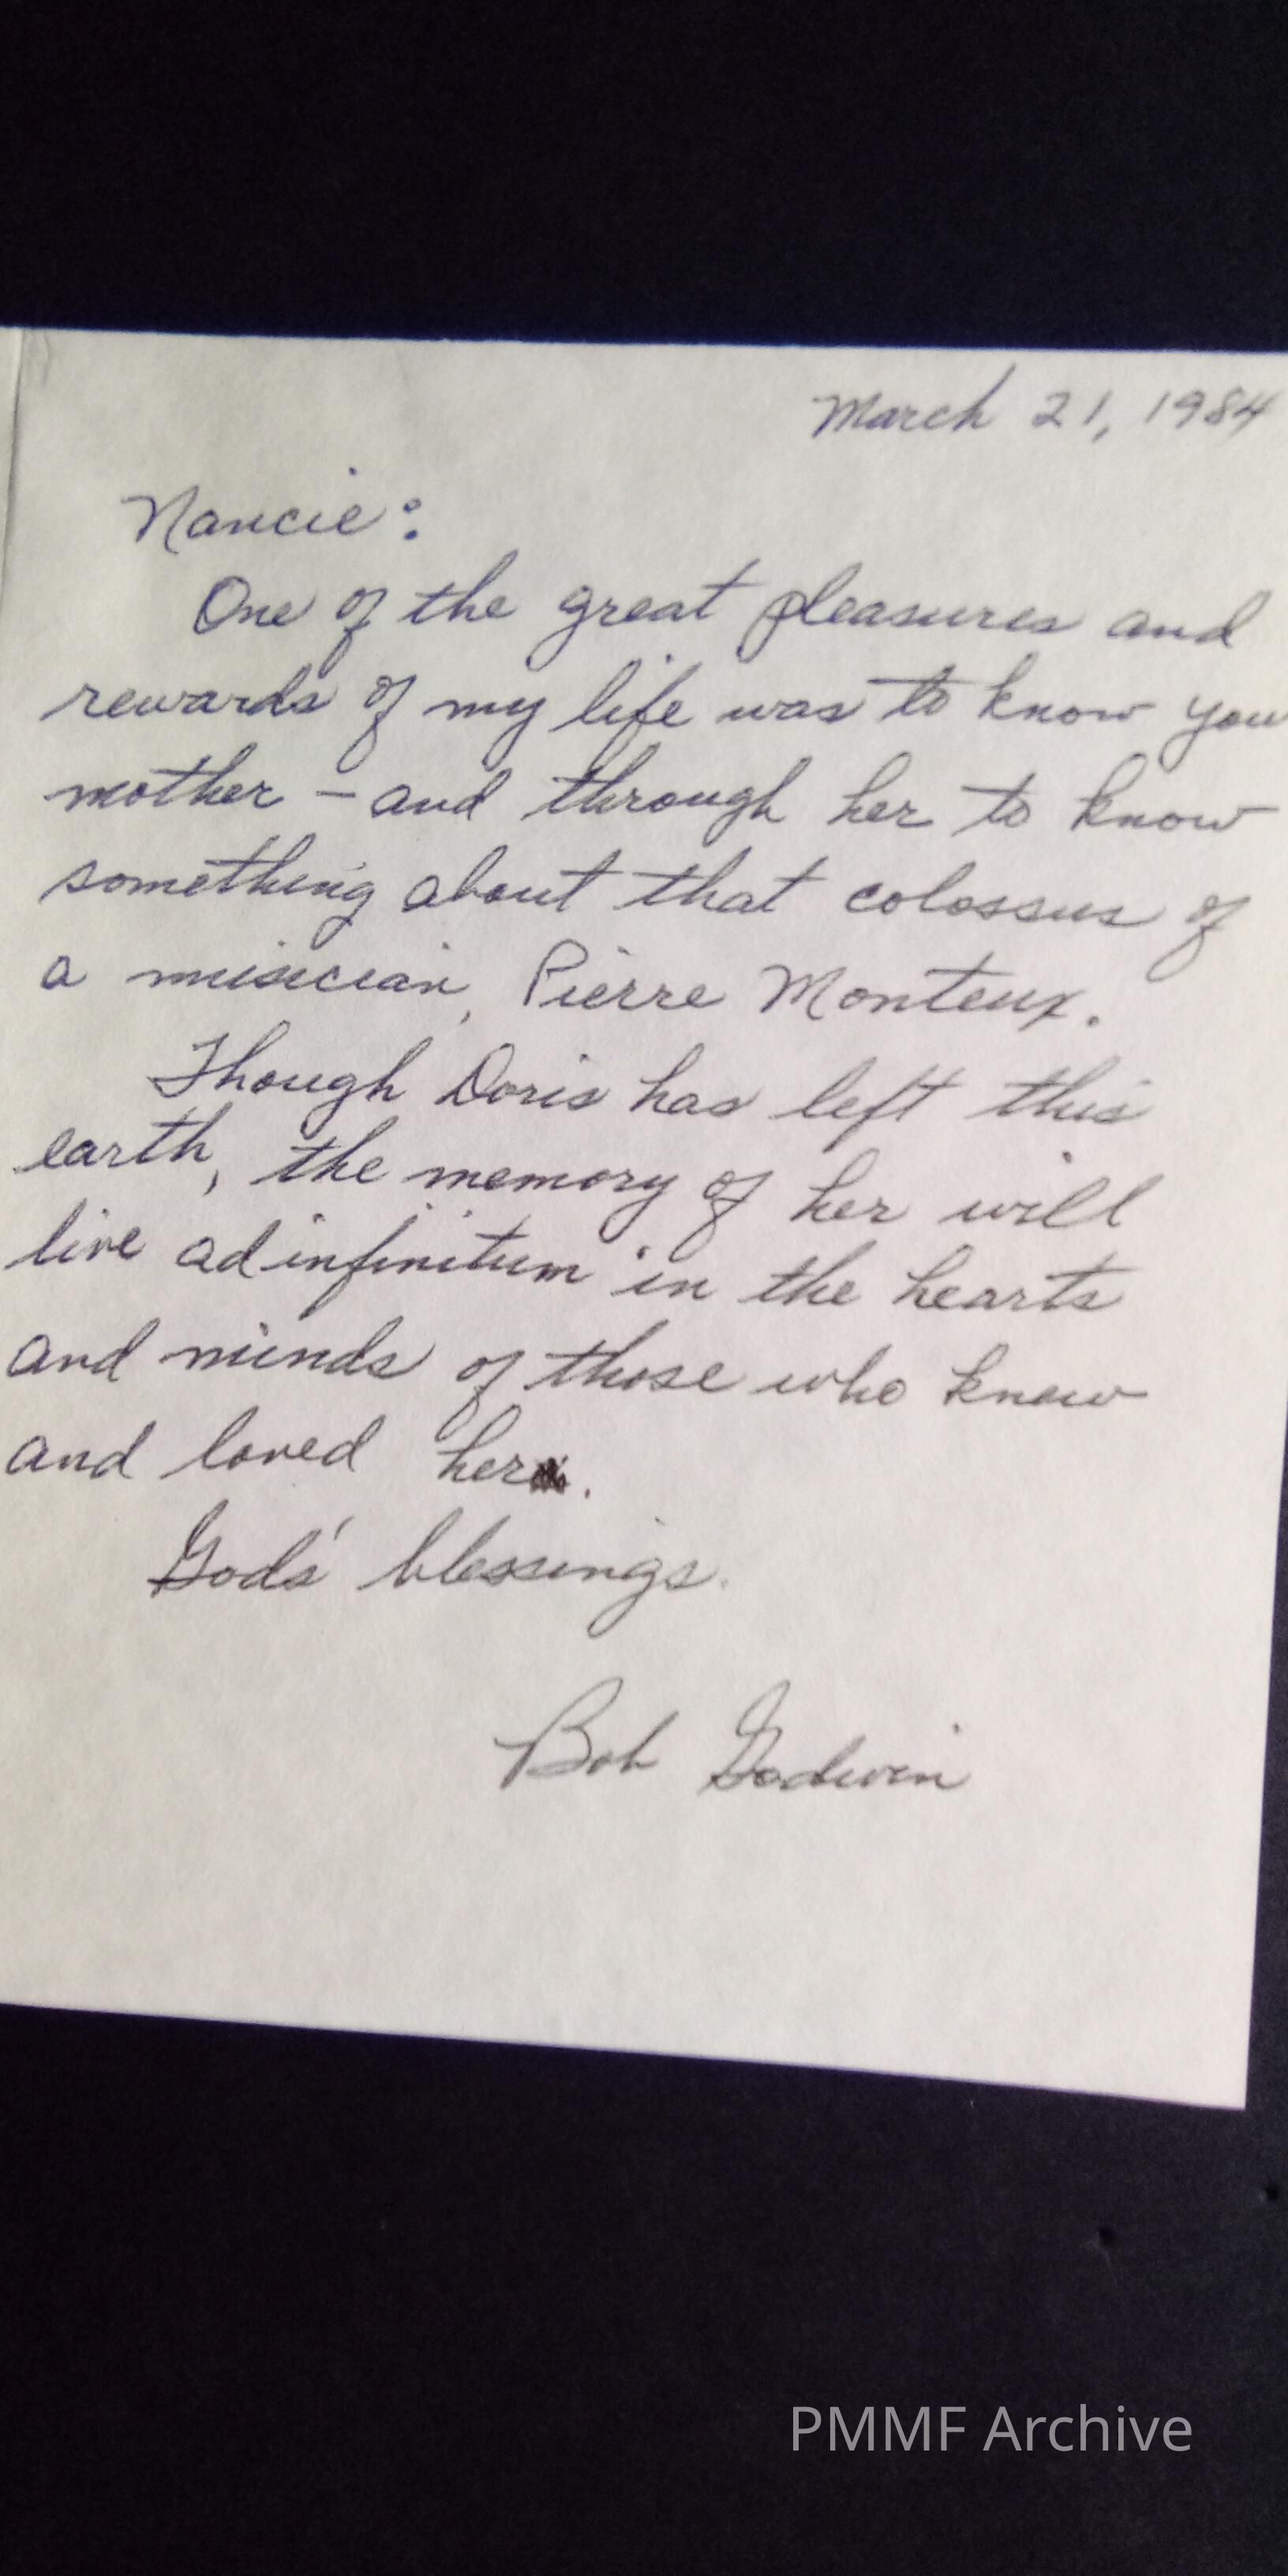 March 21, 1984
Nancie:
One of the great pleasures and
rewards of my life was to know you
mother – and through her to know
something about that colossus of
a musician, Pierre Monteux.
Though Doris has left this
earth, the memory of her will
live ad infinitum in the hearts
and minds of those who knew
and loved her.
God's blessings.
Bob Godwin
PMMF Archive